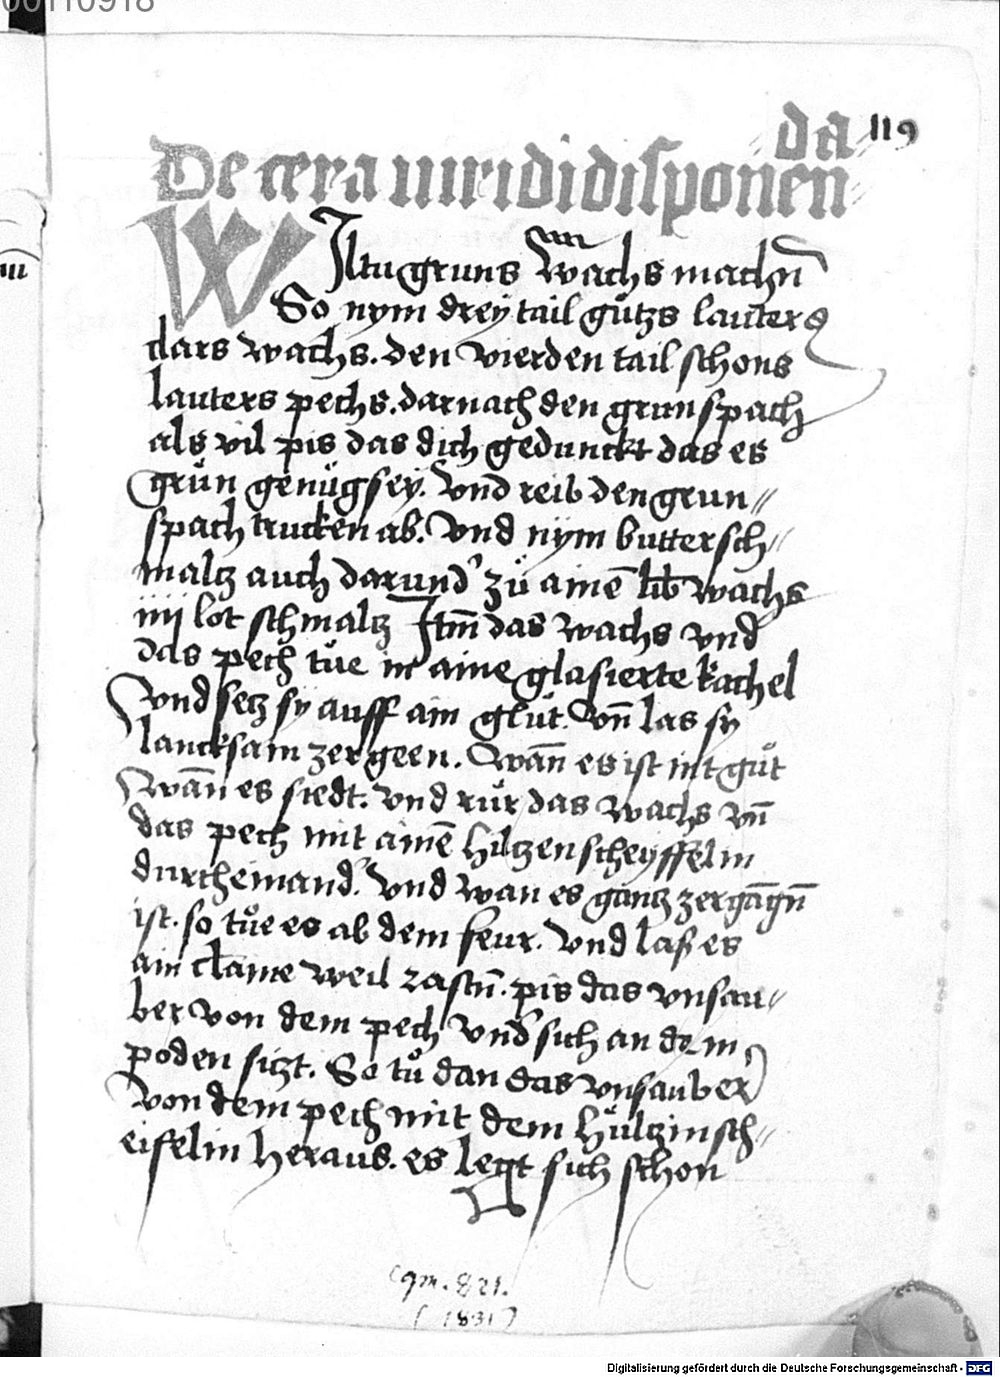 00110918
da 119
De cera uiridi disponen
WIltu gruns wachs machn
So nym drey tail gůtzs lauters
dars wachs. den vierden tail schons
lauters pechs. darnach den grunspach
als vil pis das dich gedunckt das es
grün genůg sey. Vnd reib den grun〃
spach trucken ab. Vnd nym buttersch〃
maltz auch darund' zů ainē lib wachs
iiij lot schmaltz Itm̄ das wachs vnd
das pech tůe in aine glasierte kachel
Vnd setz sy auff ain glůt. Vn̄ las sy
lancksam zergeen. Wan̄ es ist nit gůt
Wan̄ es siedt. vnd růr das wachs vn̄
das pech mit ainē hiltzen scheyffelin
durcheinand'. Vnd wan es gantz zergāgn̄
ist. so tůe es ab dem feur. Vnd laß es
ain claine weil rastn̄. pis das vnsau〃
ber von dem pech vnd sich an dem
poden sitzt. So tů dan das vnsauber
Von dem pech mit dem hültzin sch〃
eifelin heraus. es legt sich schon
Cgm. 821.
(1831)
Digitalisierung gefördert durch die Deutsche Forschungsgemeinschaft - DFG